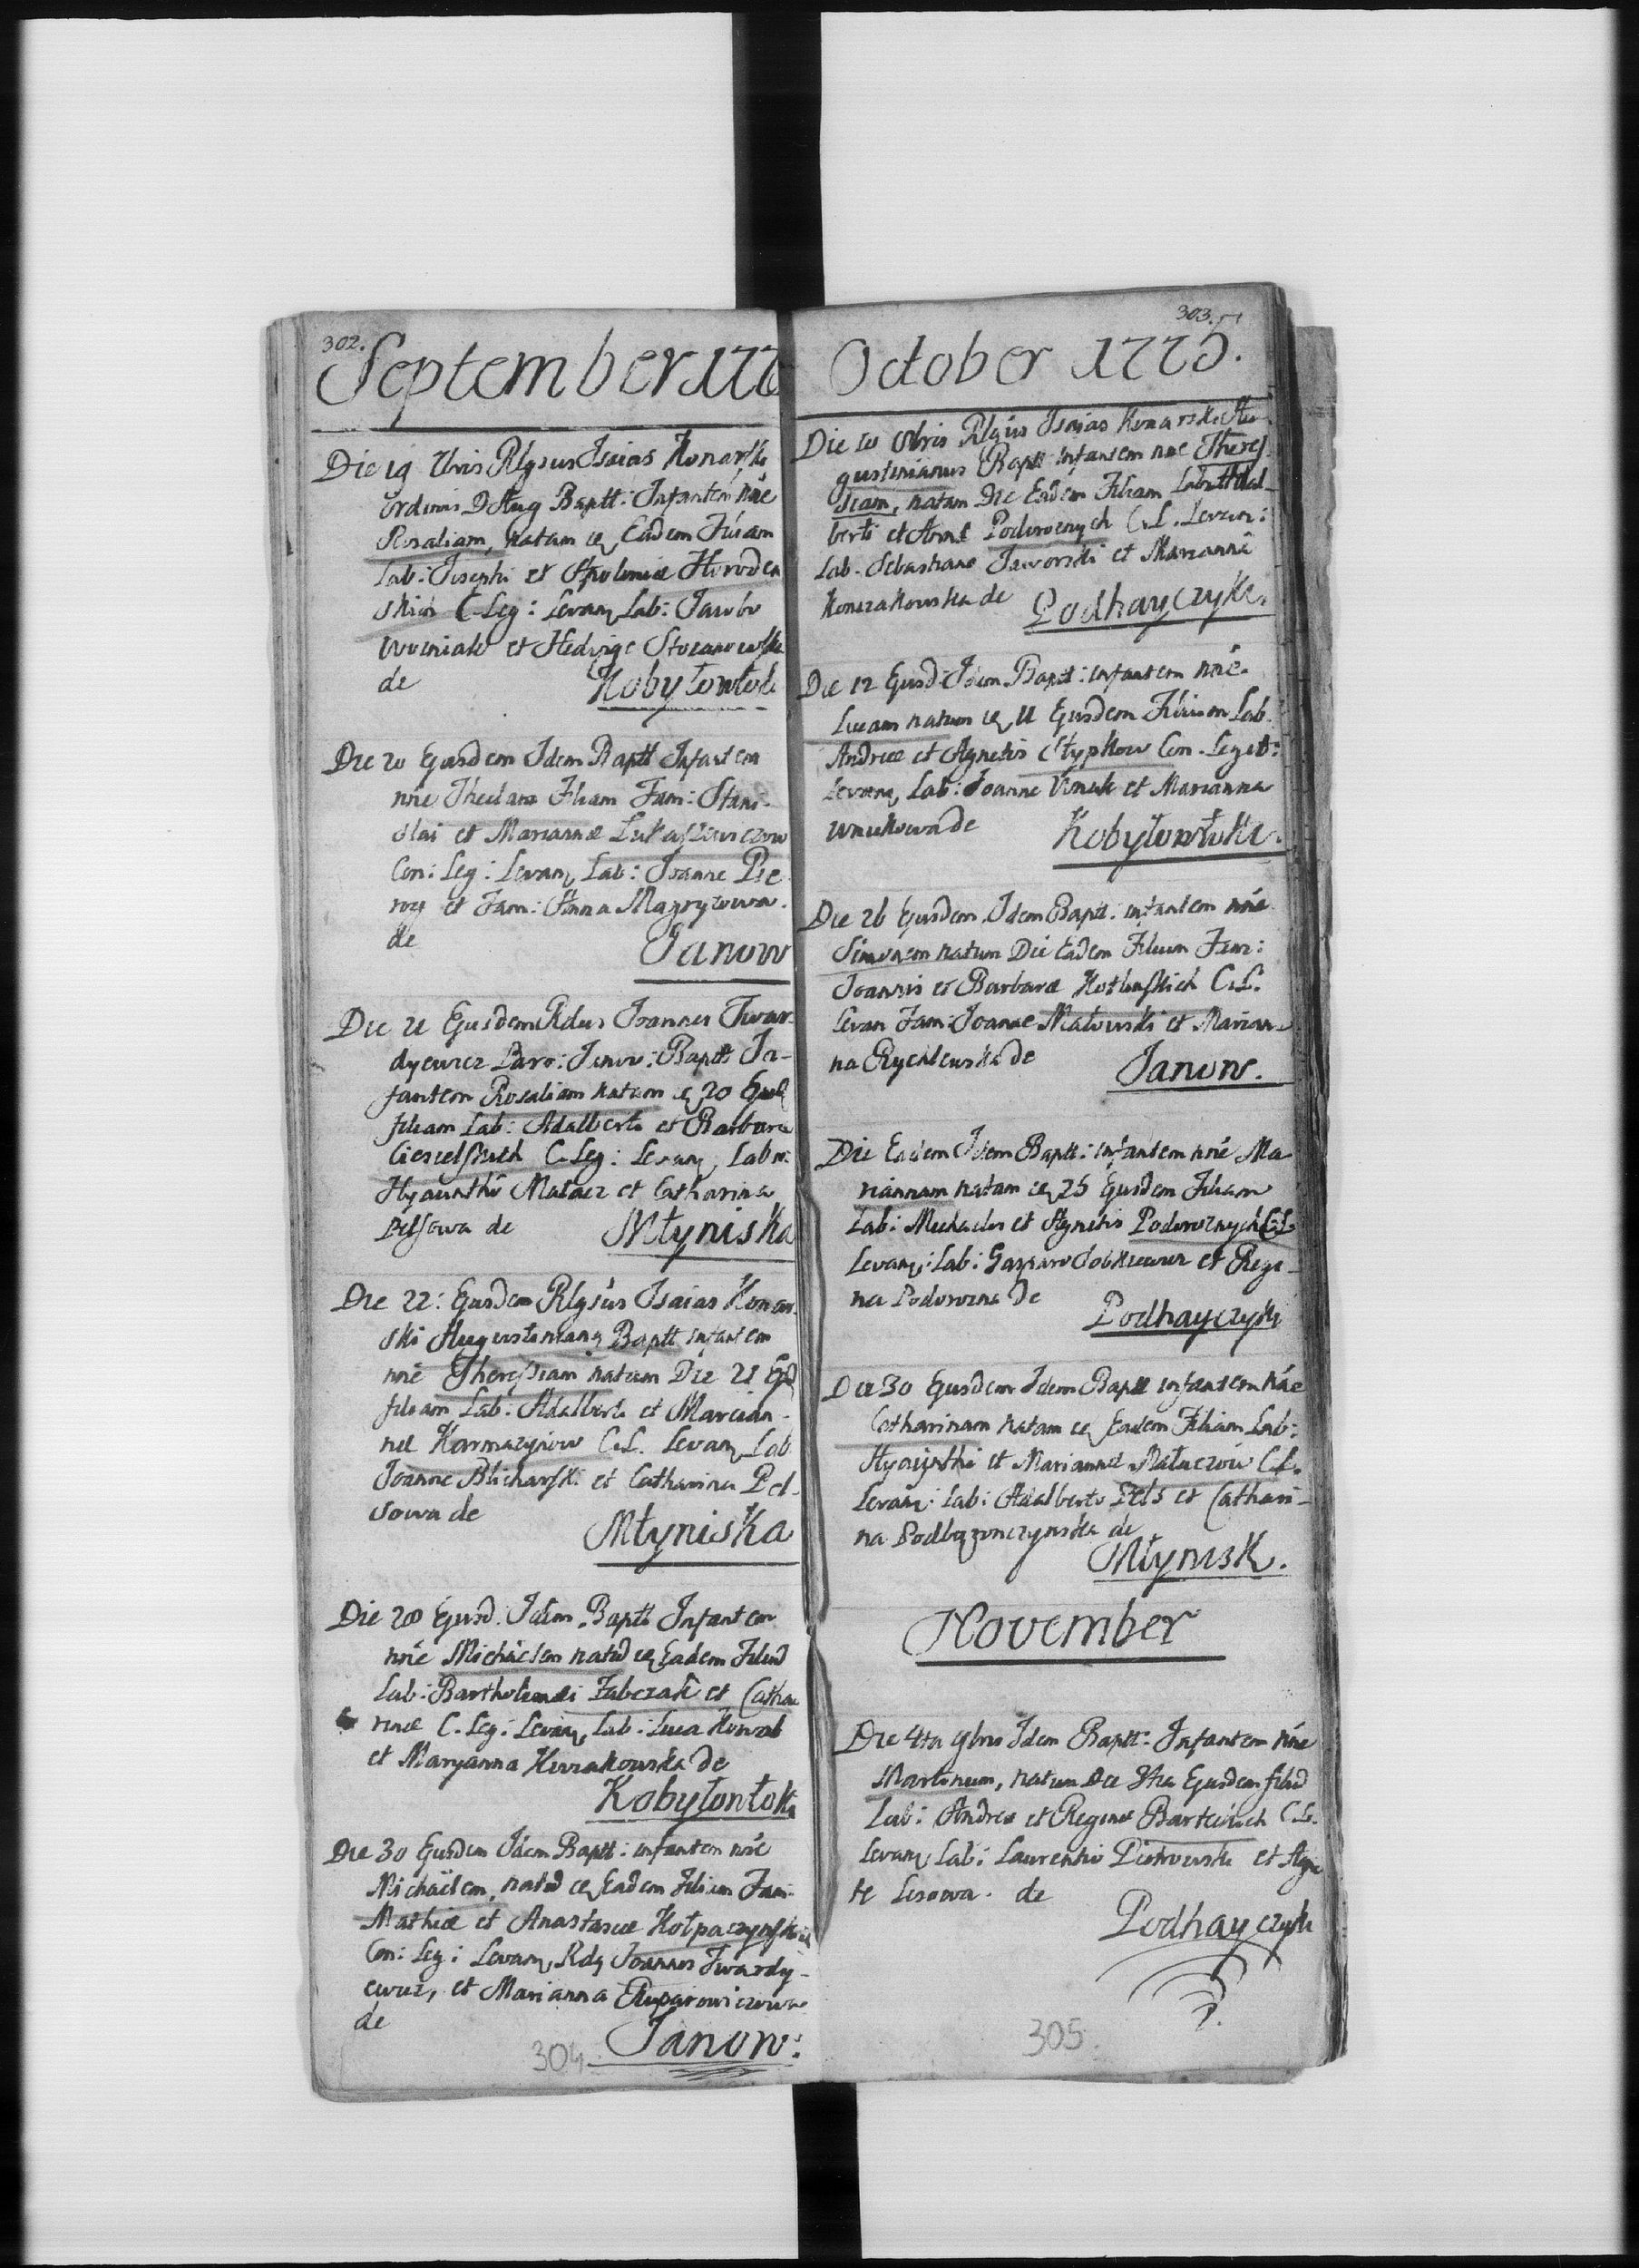 302.
September 177
Die 19 7bris Rlgsus Isaias Konarski
ordinis D Aug Baptt: Infantem nñe
Rosaliam, natam Eadem Filiam
Lab: Josephi et Apoloniæ Horoden
skich C. Leg: Levan Lab: Jacobo
Wozniak et Hedvige
de Kobyłowłok
Die 20 Ejusdem Idem Baptt Infantem
nñe Theclam Filiam Fam: Stani-
slai et Mariannæ Łukasziewiczow
Con: Leg: Levan Lab: Joanne Pie
rog et Fam: Anna
de Janow
Die 21 Ejusdem Rdus Joannes Twar-
dyewicz Paro: Janov: Baptt In-
fantem Rosaliam natam 20 Ejusd
filiam Lab: Adalberti et Barbaræ
Ciesielskich C. Leg: Levan Labr:
Hyacintho Małacz et Catharina
Pelsowa de Młyniska
Die 22: Ejusdem Rlgsus Isaias Konar
ski Augustinianq Baptt infantem
nñe Theressiam natam Die 21 Ejsd
filiam Lab: Adalberti et Marian-
næ Karmazynow C.L. Levan Lab
Joanne Blicharski et Catharina Pel-
sowa de
Młyniska
Die 28 Ejusd: Idem Baptt Infantem
nñe Michaelem natũ Eadem Filiũ
Lab: Bartholomæi Żabczak et Catha
rinæ C. Leg: Levan Lab: Luca Kowal
et Maryanna de
Kobyłowłoki
Die 30 Ejusdem Idem Baptt: infantem nñe
Michaelem, natũ Eadem filium Fam:
Mathiæ et Anastasiæ Kołpaczynskich
Con: Leg: Levan Rdq Joannes Twardy-
ewicz, et Marianna
de
Janow:
304
303.
October 1775.
Die 10 8bris Rlgius Isaias Konarski Au-
gustinianus Baptt infantem nñe Theres-
siam, natam Die Eadem Filiam Lab: Adal-
berti et Annæ Podoroznych C.L. Levan:
Lab. Sebastiano Jaworski et Marianna
de Podhayczyki.
Die 12 Ejusd Idem Baptt: infantem nñe.
Lucam natum 11 Ejusdem Filium Lab.
Andreæ et Agnetis Stypkow Con. Legit:
Levan Lab: Joanne Wnuk et Marianna
Wnukowa de Kobyłowłoki.
Die 26 Ejusdem Idem Baptt: infantem nñe
Simonem natum Die Eadem Filium Fam:
Joannis et Barbaræ C.L.
Levan Fam: Joanne Małowski et Marian-
na Rychlewska de Janow.
Die Eadem Idem Baptt: infantem nñe Ma
riannam natam 25 Ejusdem Filiam
Lab: Michaelis et Agnetis Podoroznych C:L
Levan: Lab: Gasparo et Regi-
na Podorozna de
Podhayczyki
Die 30 Ejusdem Idem Baptt infantem nñe
Catharinam natam Eadem Filiam Lab:
Hyacinthi et Mariannæ Małaczow C.L.
Levan: Lab: Adalberto Pels et Cathari-
na de
Młynisk.
November
Die 4ta 9bris Idem Baptt: Infantem nñe
Martinum, natum Die 3tia Ejusdem filiũ
Lab: Andreæ et Reginæ C.L.
Levan Lab: Laurentio Piotrowski et Agne
te Lisowa. de
Podhayczyk
305.